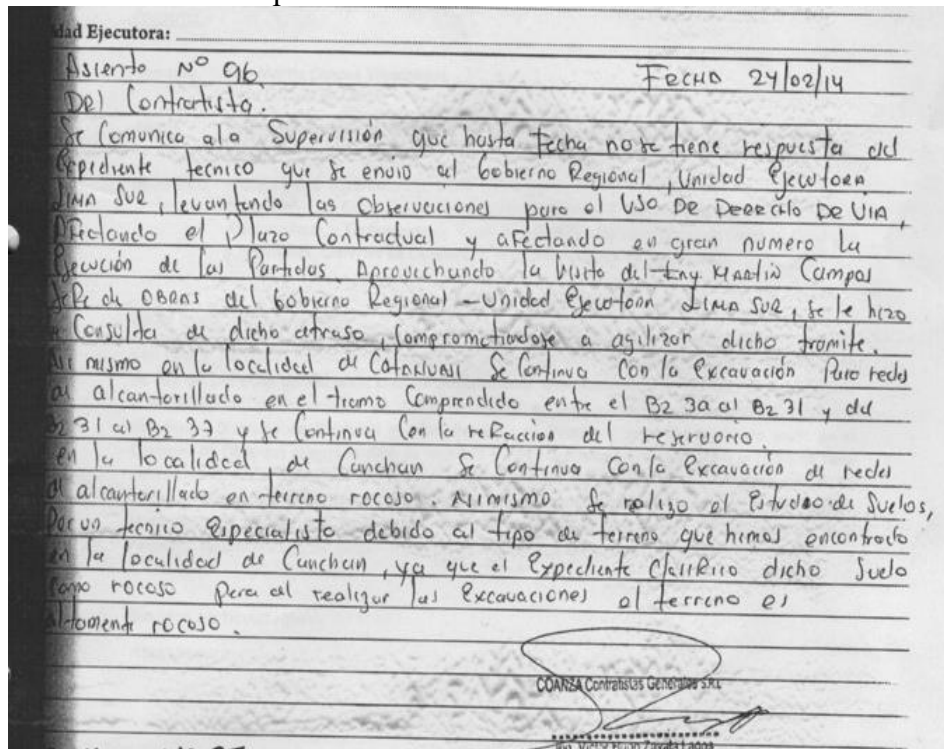 dad Ejecutora:
Asiento Nº 96 FECHA 24/02/14
Del Contratista.
Se Comunica ala Supervisión que hasta Fecha no se tiene respuesta del
Expediente tecnico que se envio al Gobierno Regional, Unidad Ejecutora
LIMA SUR, levantando las Observaciones para el USO DE DERECHO DE VIA,
Afectando el Plazo Contractual y afectando en gran numero la
Ejecución de las Partidas Aprovechando la Visita del Ing Martin Campos
Jefe de OBRAS del Gobierno Regional - Unidad Ejecutora LIMA SUR, se le hizo
Consulta de dicho atraso, Comprometiendose a agilizar dicho tramite.
Asi mismo en la localidad de Se Continua Con la Excavación Para redes
de alcantarillado en el tramo Comprendido entre el Bz 30 al Bz 31 y del
Bz 31 al Bz 37 y se Continua Con la reFaccion del reservorio.
en la localidad de Canchan Se Continua Con la Excavación de redes
de alcantarillado en terreno rocoso. Asimismo Se realizo el Estudio de Suelos,
Por un tecnico Especialista debido al tipo de terreno que hemos encontrado
en la localidad de Canchan, ya que el Expediente Clasifico dicho Suelo
Como rocoso Pero al realizar las Excavaciones el terreno es
altamente rocoso.
COANZA Contratistas Generales S.R.L
Ing. Victor Hugo Zavala Lagos